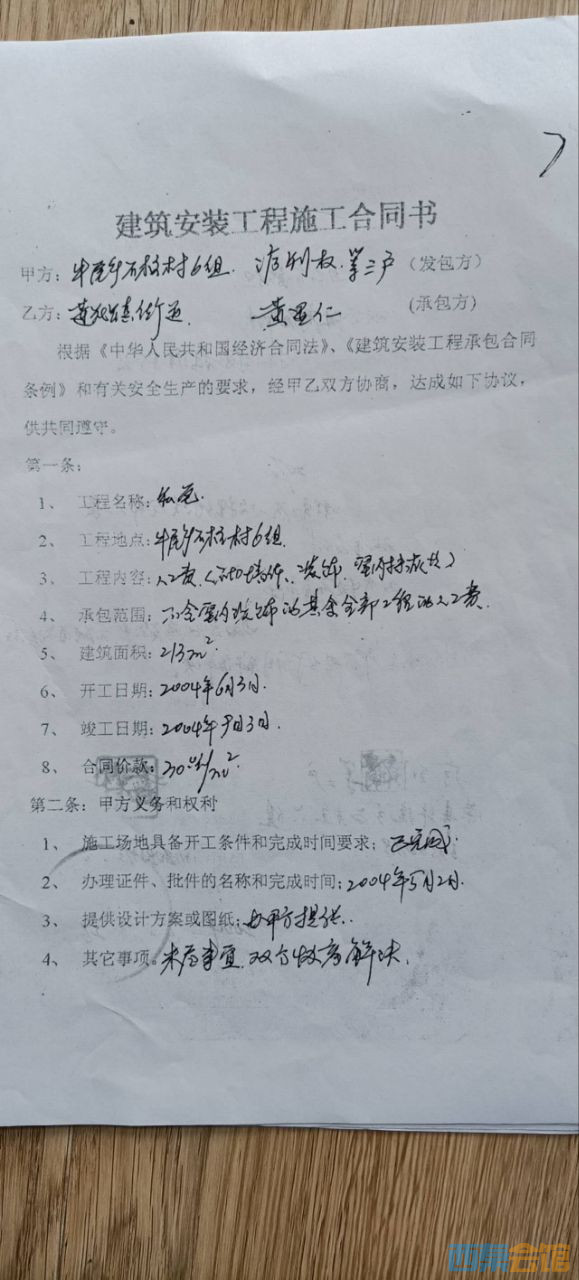 建筑安装工程施工合同书
甲方：牛尾乡石柱村6组. 权. 等三户（发包方）
乙方： 黄 仁 (承包方)
根据《中华人民共和国经济合同法》、《建筑安装工程承包合同
条例》和有关安全生产的要求，经甲乙双方协商，达成如下协议，
供共同遵守。
第一条：
1、 工程名称：私宅.
2、 工程地点：牛尾乡石柱村6组.
3、 工程内容：人工费
4、 承包范围：不含室内装饰的其余全部工程的人工费.
5、 建筑面积：213m².
6、 开工日期：2004年6月3日.
7、 竣工日期：2004年9月3日.
8、 合同价款：/m²
第二条：甲方义务和权利
1、 施工场地具备开工条件和完成时间要求：已完成.
2、 办理证件、批件的名称和完成时间：2004年5月2日.
3、 提供设计方案或图纸：由甲方提供.
4、 其它事项。未尽事宜. 双方协商解决.
西祠会馆